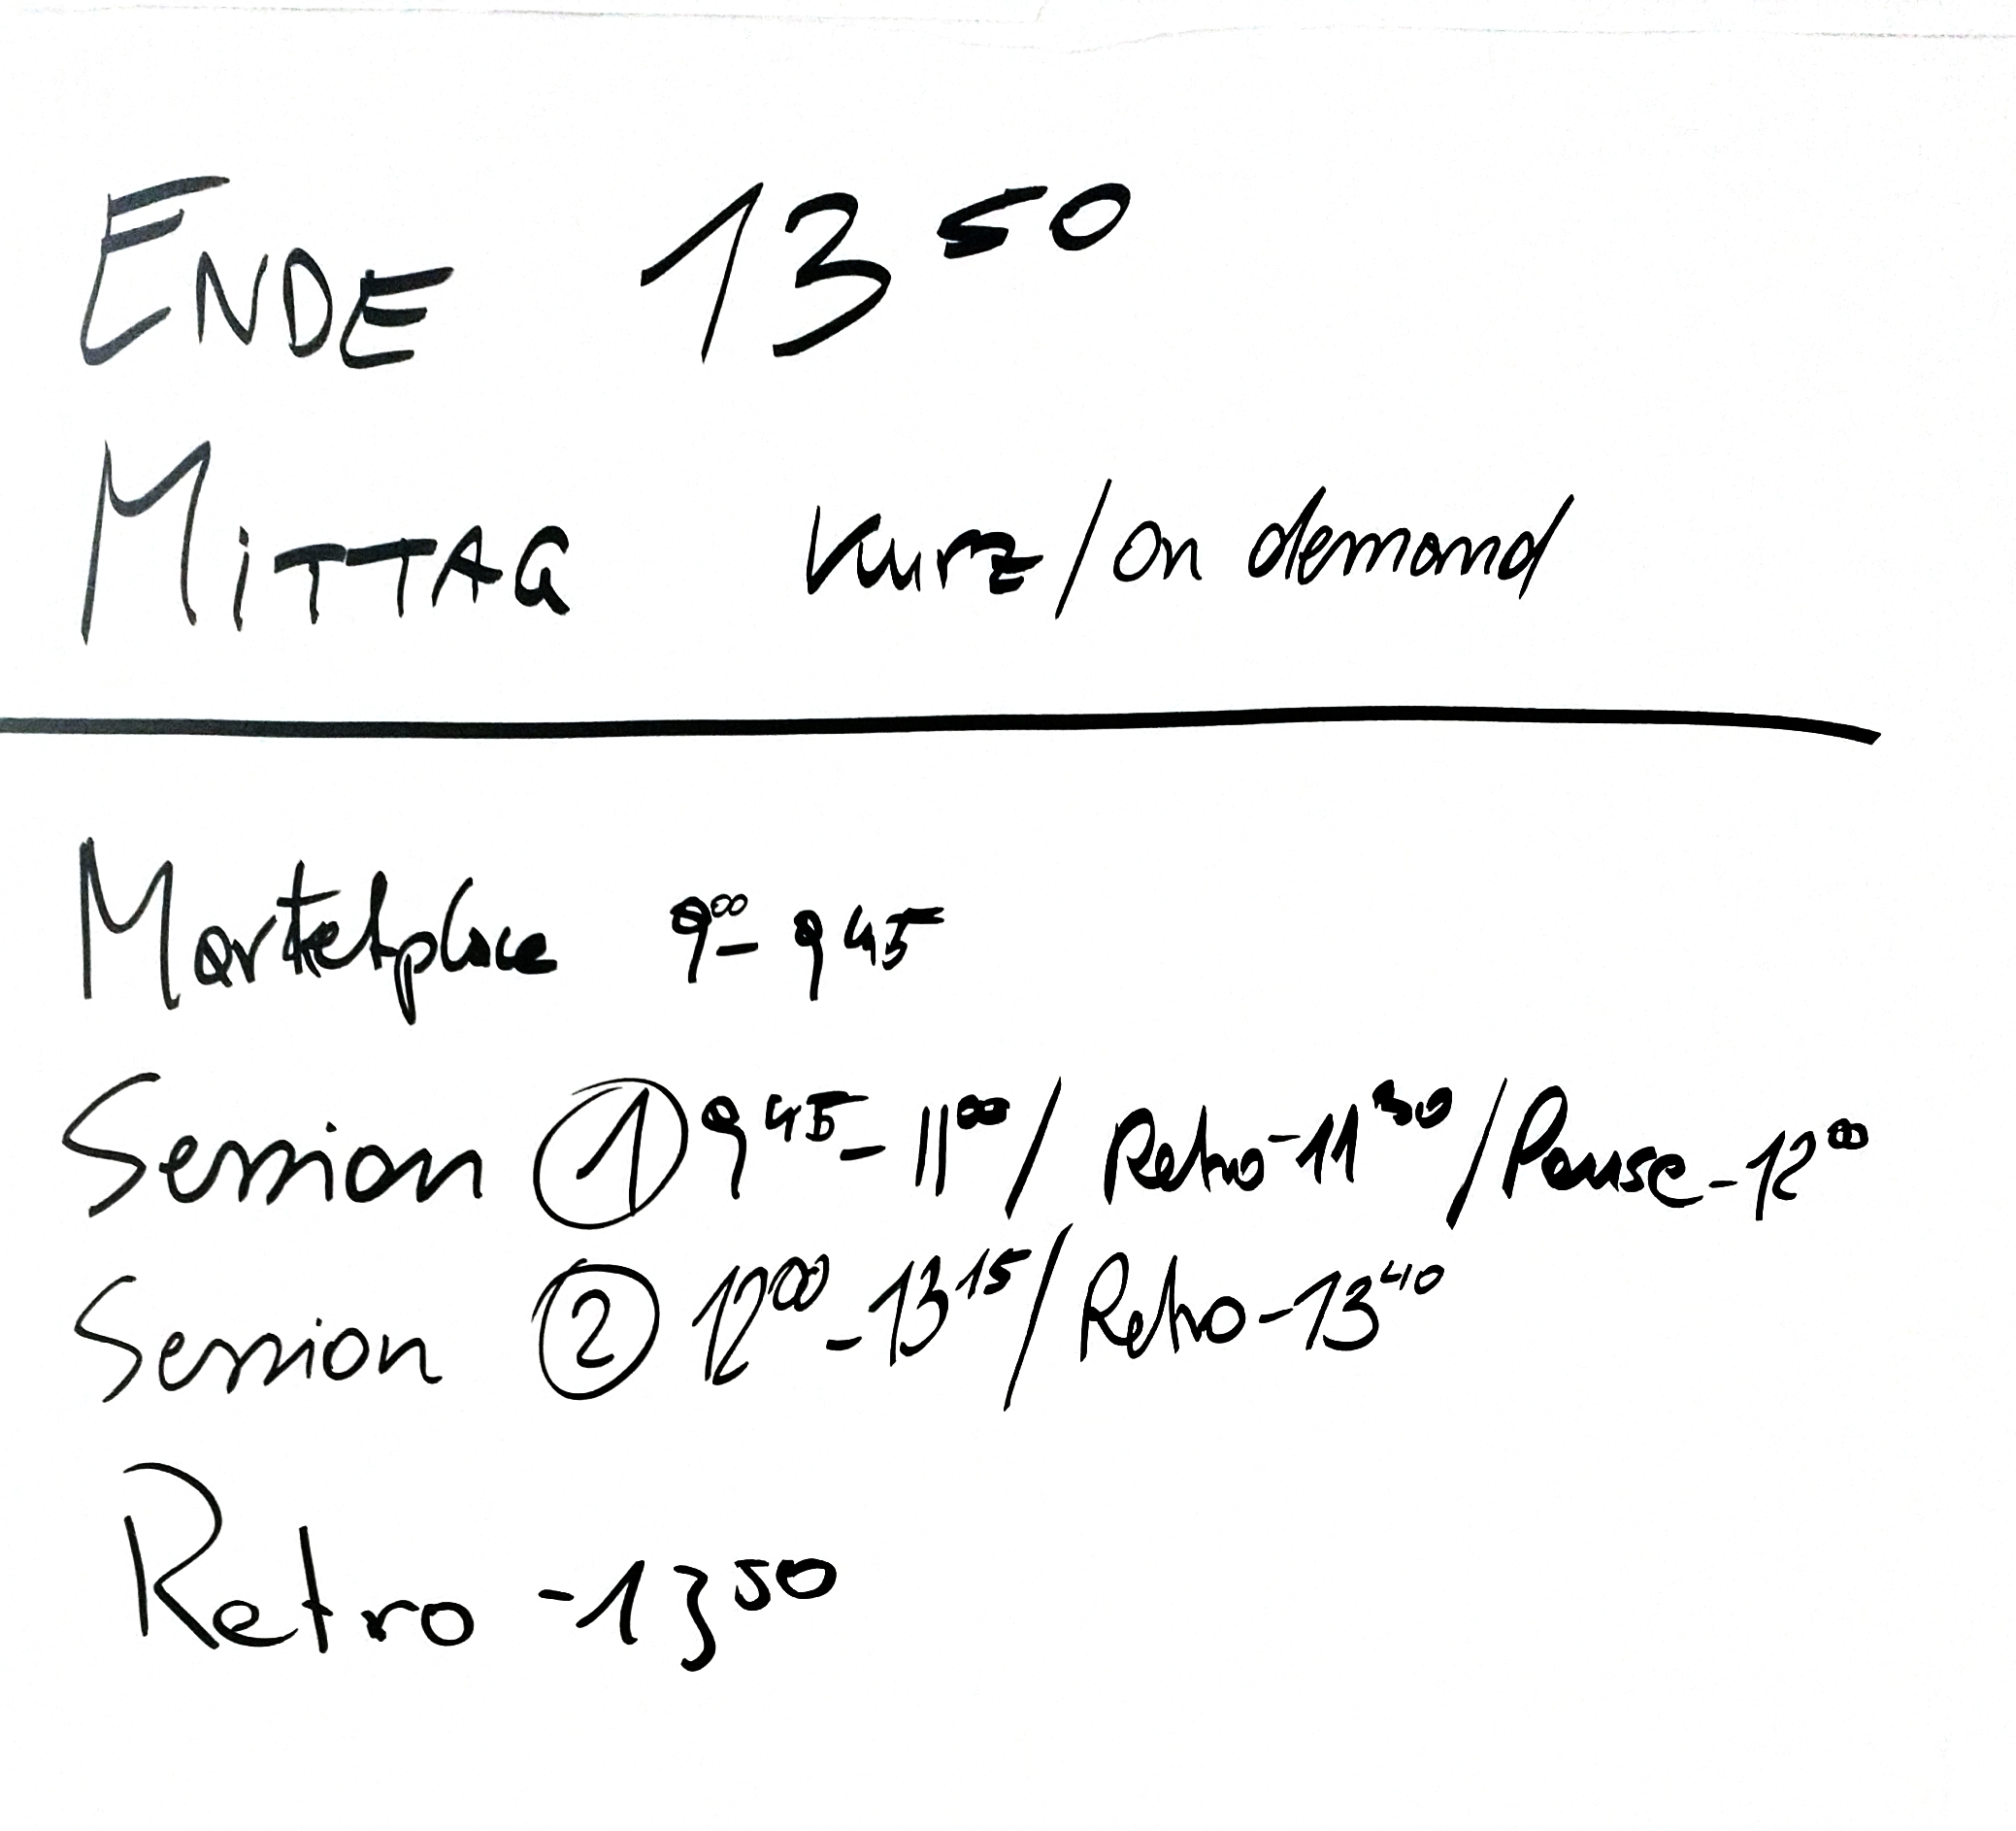 ENDE 13⁵⁰
MITTAG kurz/on demand
Marketplace 9⁰⁰ - 9⁴⁵
Session ① 9⁴⁵ - 11⁰⁰ / Retro - 11³⁰ / Pause - 12⁰⁰
Session ② 12⁰⁰ - 13¹⁵ / Retro - 13⁴⁰
Retro - 13⁵⁰